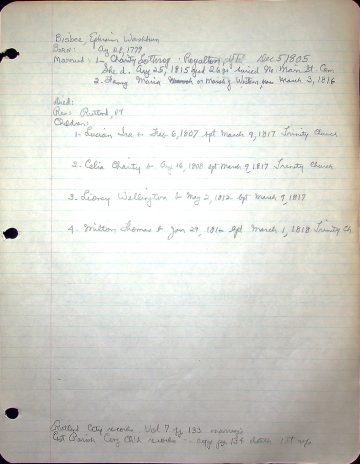 Bisbee, Ephraim Washburn
Born: Aug 28, 1779
Married: 1- Charity Lothrop - Royalton, Vt Dec 5 1805
She d. Aug 25, 1815 aged 26 yrs buried No. Main St. Cem
2. Fanny Maria or March 3, 1816
Died:
Res: Rutland, Vt
Children:
1. Lucian Ira b- Dec 6, 1807 bpt March 9, 1817 Trinity Church
2. Celia Charity b- Aug 16, 1808 bpt March 9, 1817 Trinity Church
3. Wellington b- May 2, 1812 bpt March 9, 1817
4. Milton Thomas b- Jan 29, bpt March 1, 1818 Trinity Ch
Rutland City records Vol 7 pg 133 marriage
East Parish Cong Ch records - pg 134 death 1st wife